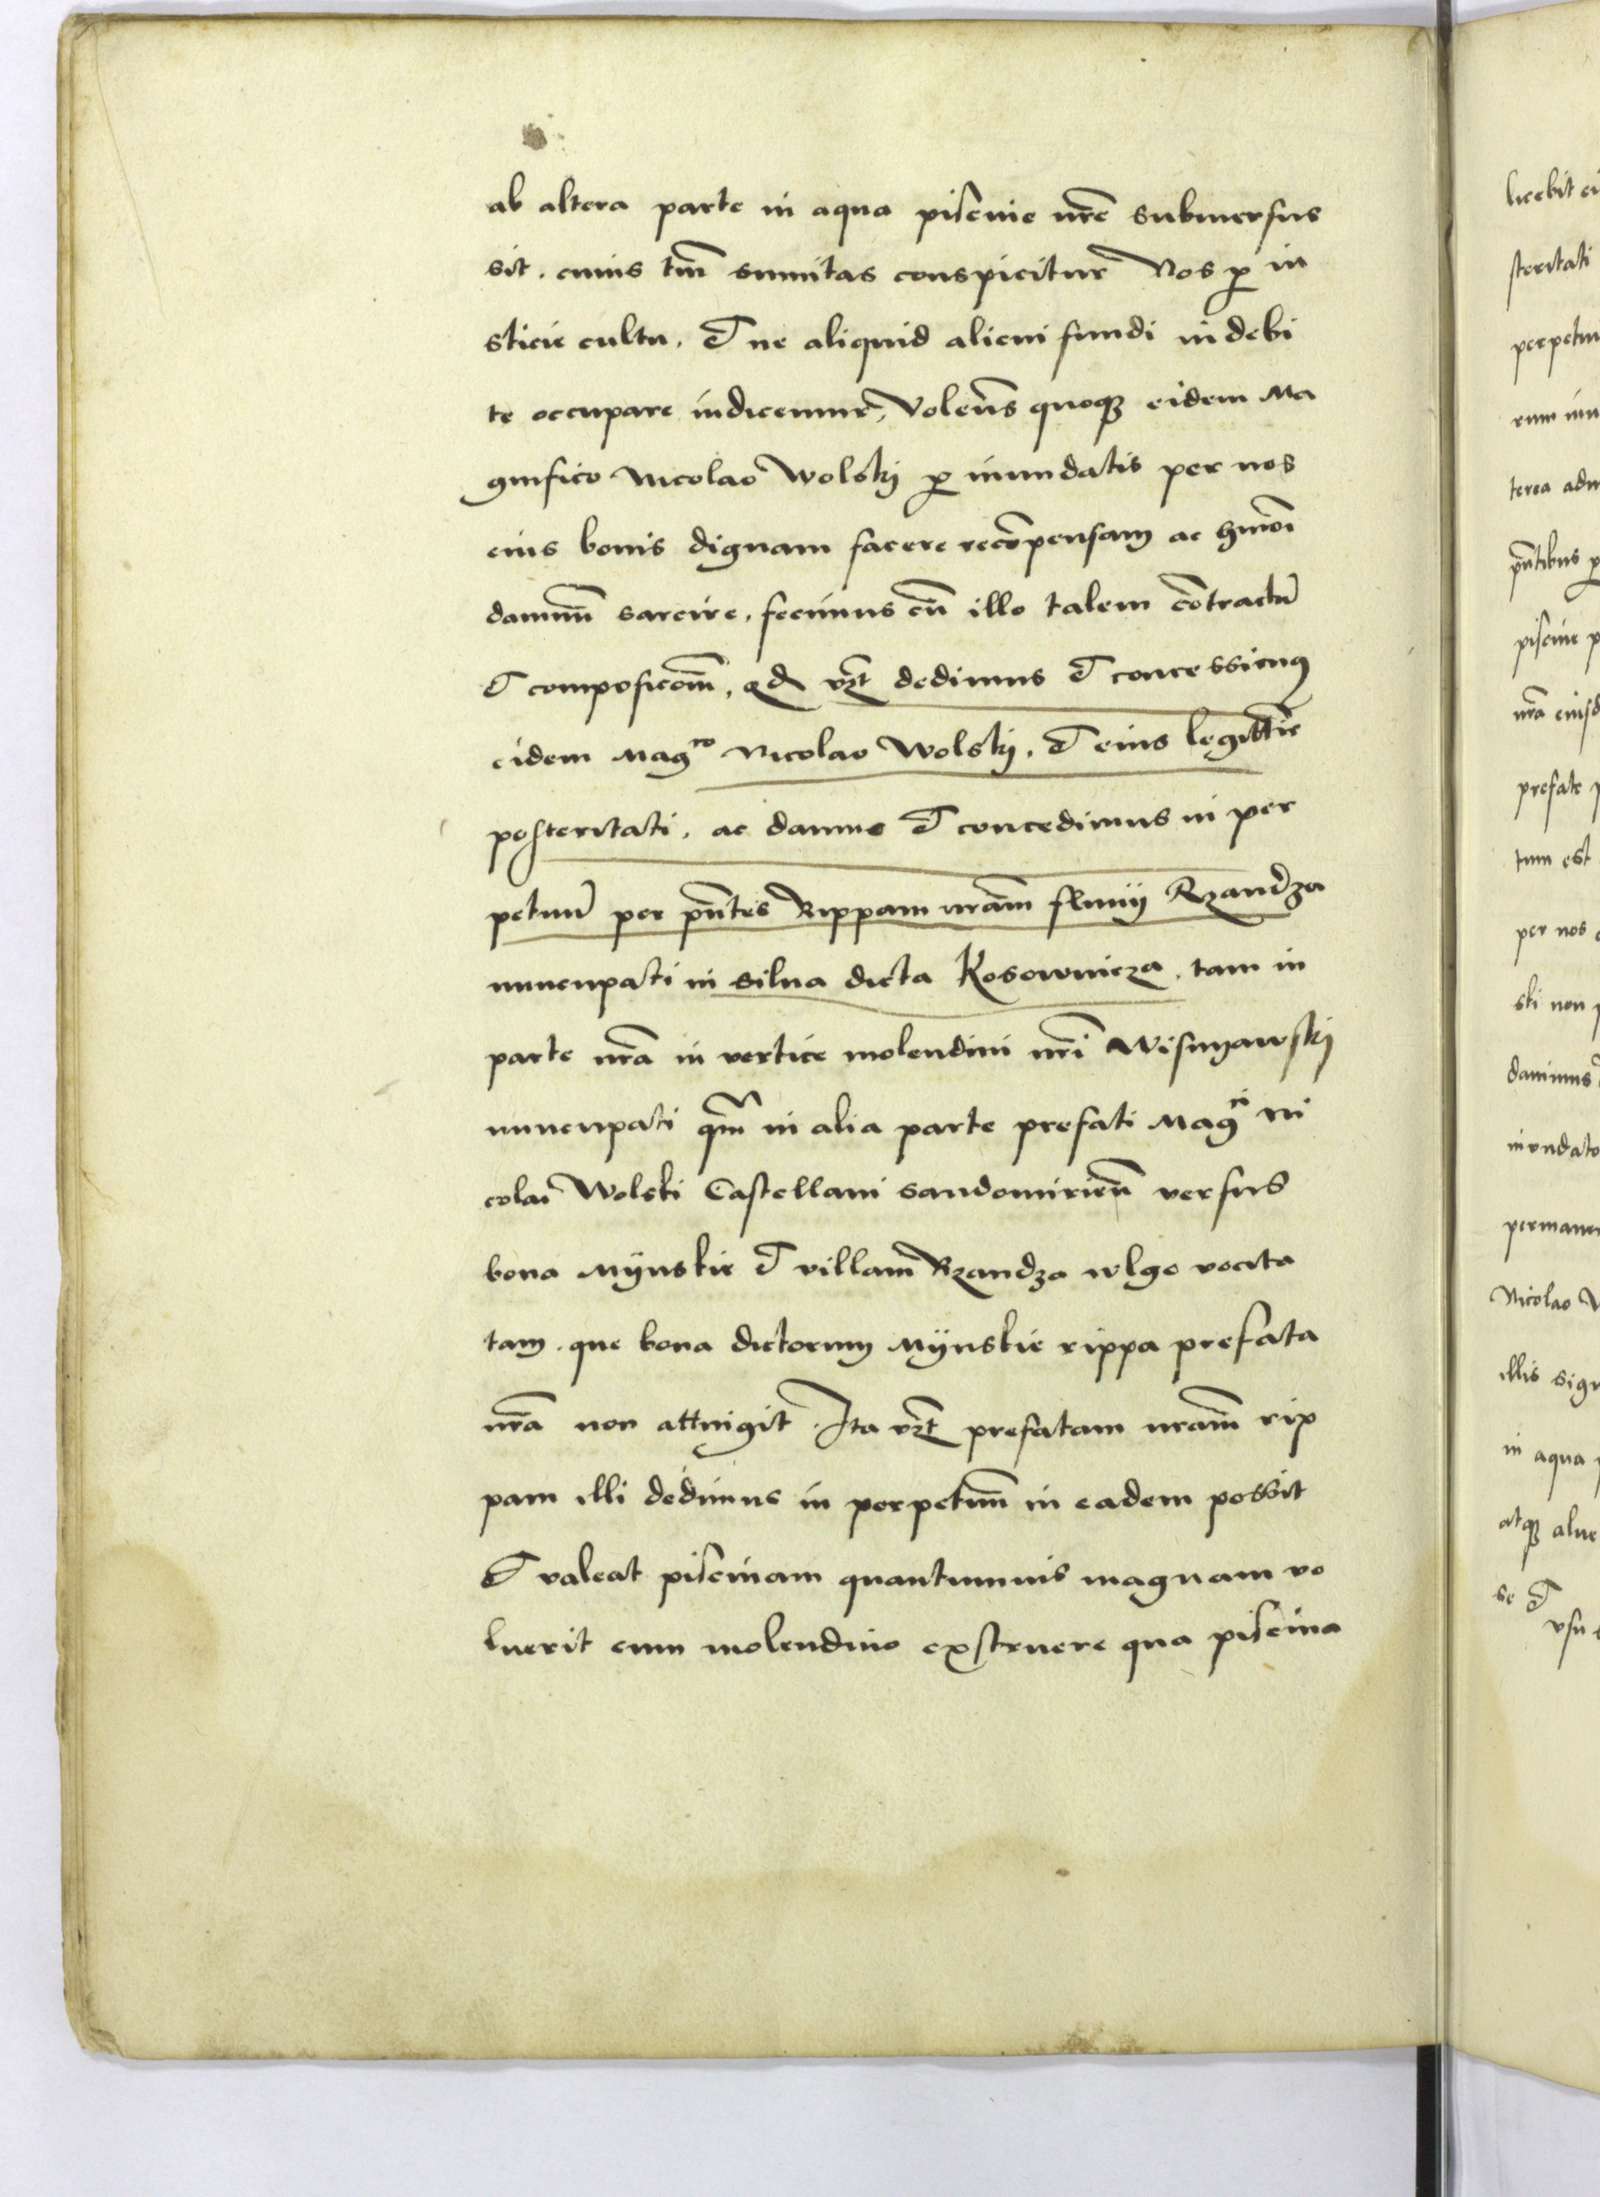 ab altera parte in aqua piscine nr̄e submersus
sit. cuius tm̄ sum̄itas conspicitur Nos p̱ iu
sticie cultu. Et ne aliquid alieni fundi in debi
te occupare iudicemur, Volen̄s quoqꝫ eidem Ma
gnifico Nicolao Wolskj p̱ inundatis per nos
eius bonis dignam facere recōpensam ac hm̄oi
damnum̄ sarcire. fecimus cū illo talem cōtractū
Et composicōm̄. qd vꝫt dedimus Et concessimus
eidem Magco Nicolao Wolskj. Et eius legittīe
posteritati. ac damus Et concedimus in per
petuū per pn̄tes Rippam nr̄am fluuij Rzandza
nuncupati in silua dicta Kosownicza. tam in
parte nr̄a in vertice molendini nr̄i Wismyawskj
nuncupati qm̄ in alia parte prefati Magci Ni
colai Wolski Castellani sandomirien̄ versus
bona Mÿnskie Et villam Rzandza wlgo vocita
tam. que bona dictorum Mÿnskie rippa prefata
nr̄a non attingit. Ita vꝫt prefatam nr̄am rip
pam illi dedimus in perpetuum̄ in eadem possit
Et valeat piscinam quantumuis magnam vo
luerit cum molendino exstruere qua piscina
licebit ei
steritati
perpetui
rum
terea adu
pn̄tibus p̱
piscine p
nr̄a eiusd
prefate
tum est
per nos
ski non
damus
inundato
permanen
Nicolao W
illis sign
in aqua
atqꝫ alue
se Et
vsu